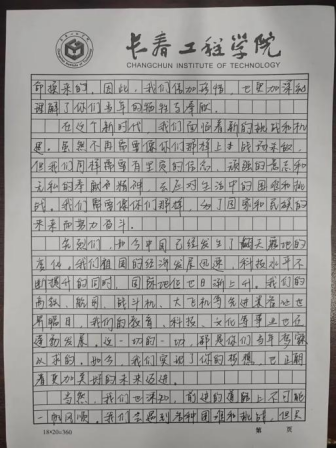 长春工程学院
CHANGCHUN INSTITUTE OF TECHNOLOGY
命换来的。因此,我们倍加珍惜,也更加深刻
理解了你们当年的牺牲与奉献。
在这个新时代,我们面临着新的挑战和机
遇。虽然不再需要像你们那样上战场杀敌,
但我们同样需要有坚定的信念、顽强的意志和
无私的奉献精神,去应对生活中的困难和挑
战。我们需要像你们那样,为了国家和民族的
未来而努力奋斗。
先烈们,如今中国已经发生了翻天覆地的
变化。我们祖国的经济发展迅速,科技水平不
断提升的同时,国际地位也日渐上升。我们的
高铁、航母、战斗机、大飞机等先进装备让世
界瞩目,我们的教育、科技、文化等事业也在
蓬勃发展。这一切的一切,都是你们当年梦寐
以求的。如今,我们实现了你的梦想,也正朝
着更加美好的未来迈进。
当然,我们也深知,前进的道路上不可能
一帆风顺。我们会遇到各种困难和挑战,但只
18×20=360
第 页